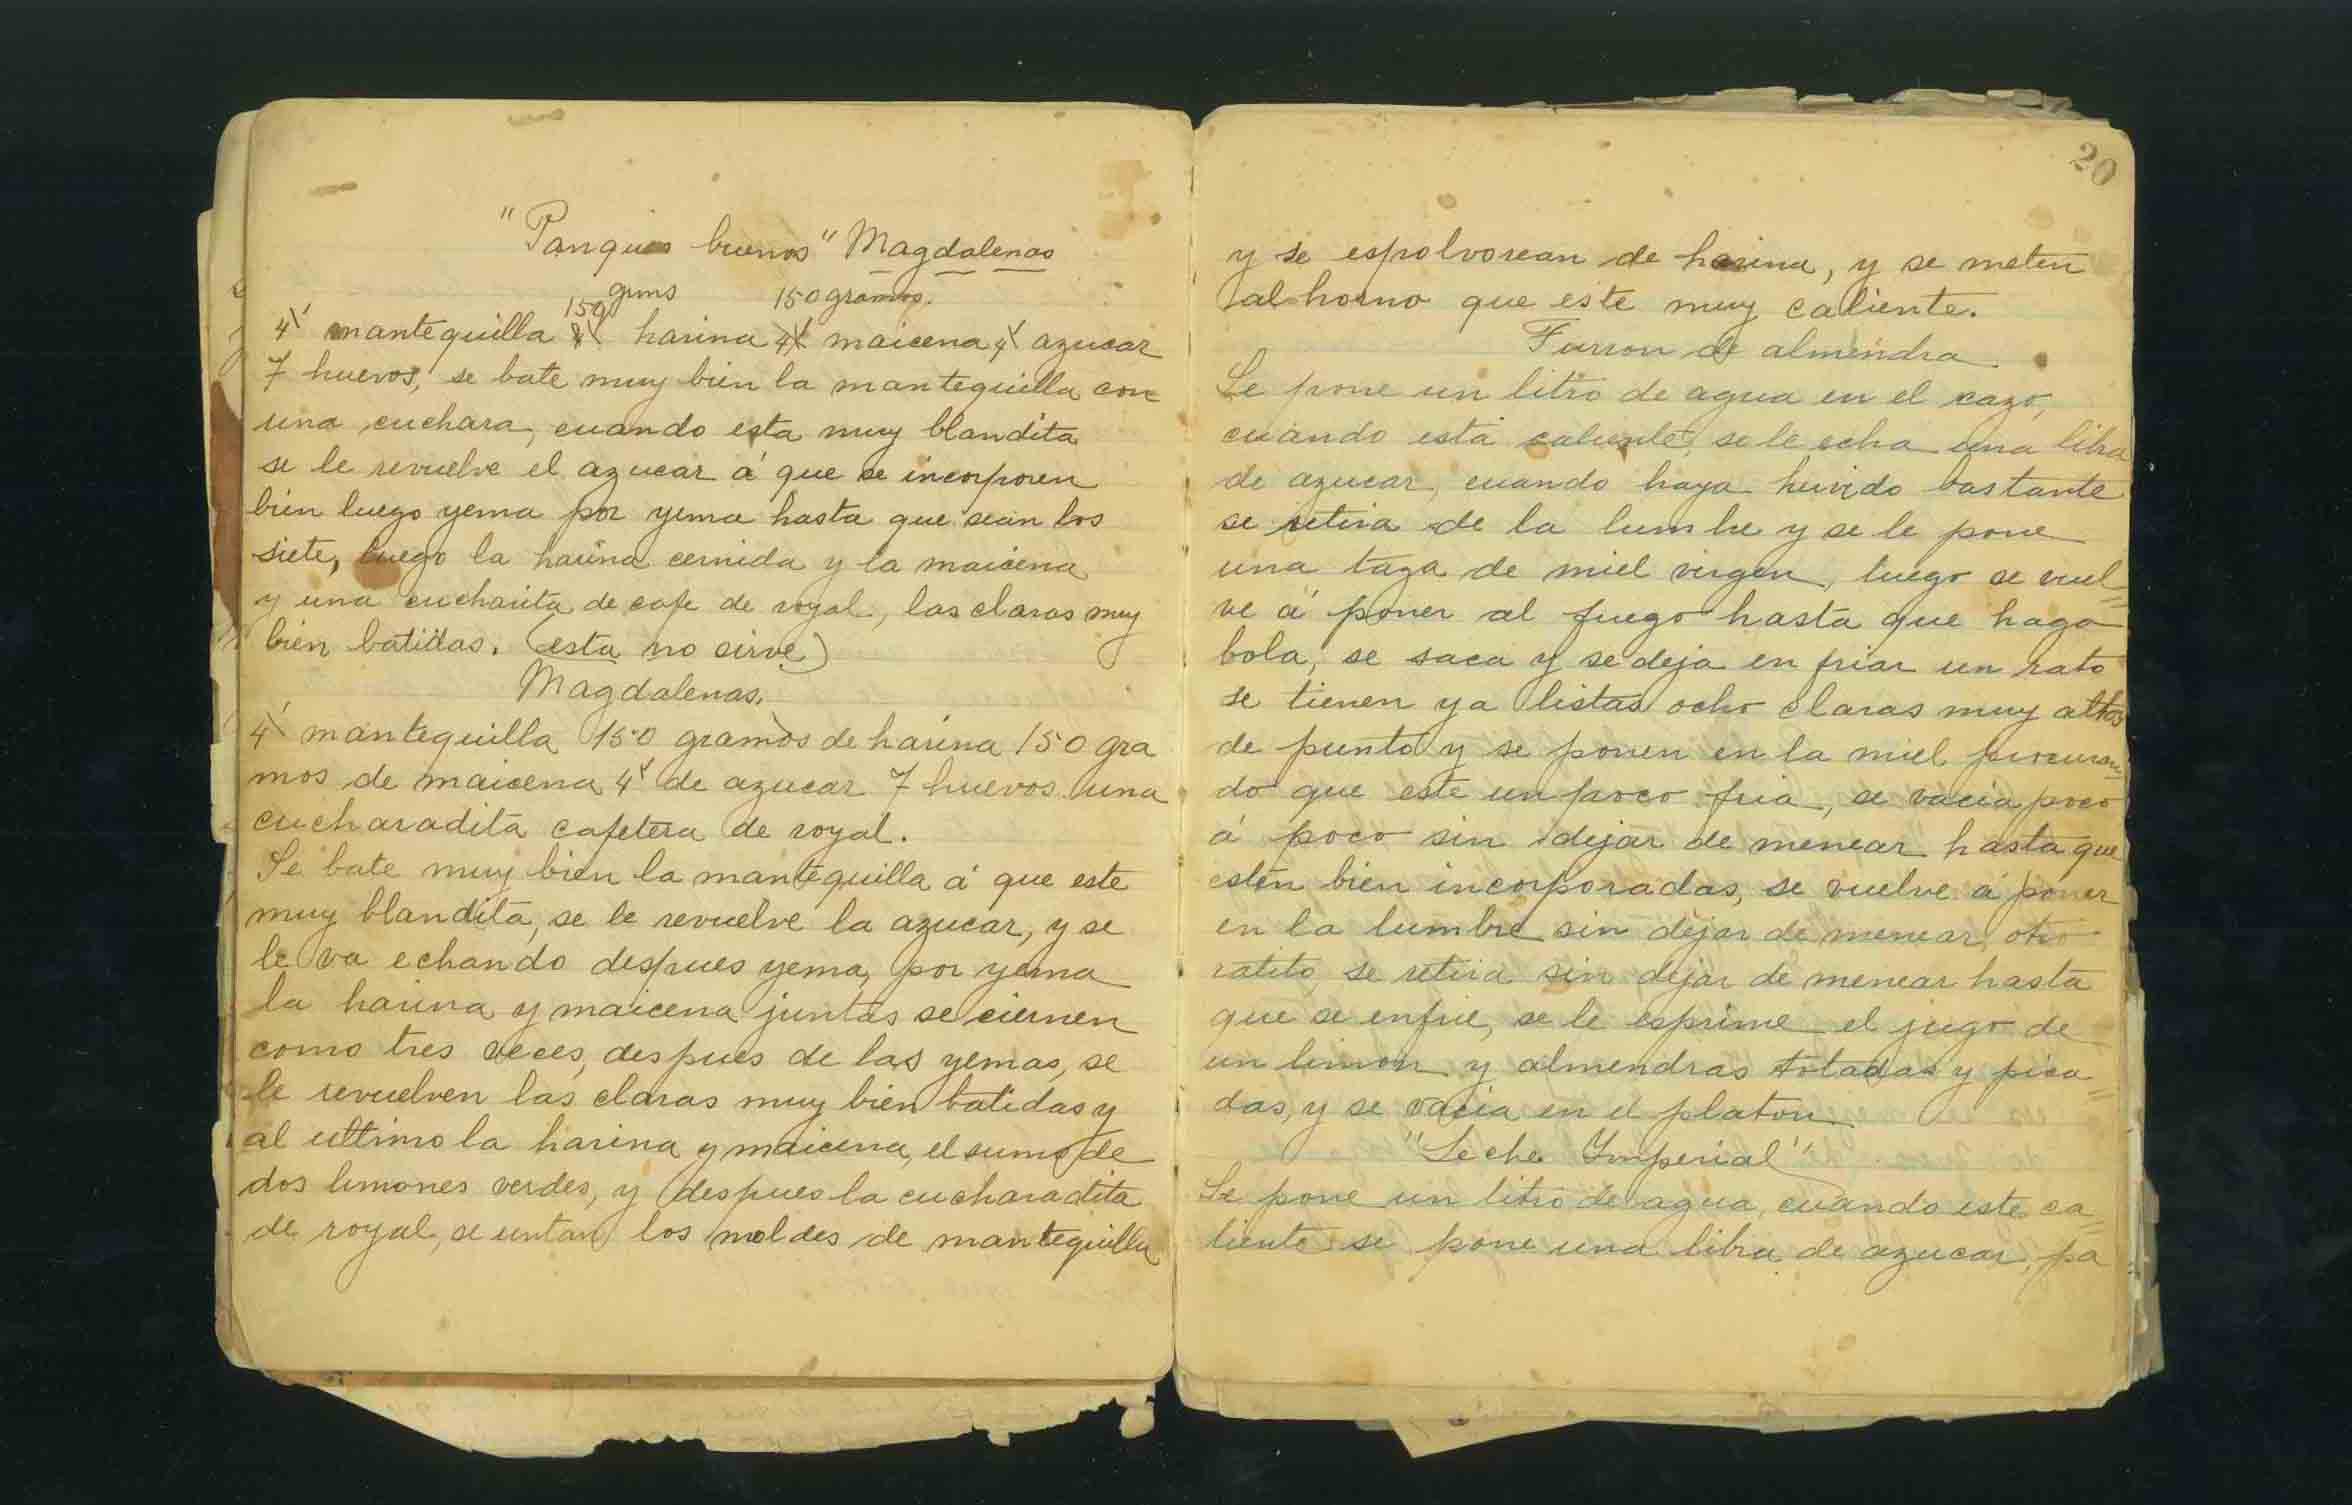 "Panques buenos" Magdalenas
150 grms 150 gramos.
4 mantequilla harina maicena 4 azucar
7 huevos, se bate muy bien la mantequilla con
una cuchara, cuando esta muy blandita
se le revuelve el azucar á que se incorporen
bien luego yema por yema hasta que sean los
siete, luego la harina cernida y la maicena
y una cucharita de cafe de royal, las claras muy
bien batidas. (esta no sirve)
Magdalenas.
4 mantequilla 150 gramos de harina 150 gra
mos de maicena 4 de azucar 7 huevos una
cucharadita cafetera de royal.
Se bate muy bien la mantequilla á que este
muy blandita, se le revuelve la azucar, y se
le va echando despues yema, por yema
la harina y maicena juntas se ciernen
como tres veces, despues de las yemas, se
le revuelven las claras muy bien batidas y
al ultimo la harina y maicena, el sumo de
dos limones verdes, y despues la cucharadita
de royal, se untan los moldes de mantequilla
20
y se espolvorean de harina, y se meten
al horno que este muy caliente.
Turron de almendra
Se pone un litro de agua en el cazo,
cuando está caliente, se le echa una libra
de azucar, cuando haya hervido bastante
se retira de la lumbre y se le pone
una taza de miel virgen, luego se vuel=
ve á poner al fuego hasta que haga
bola, se saca y se deja en friar un rato
se tienen ya listas ocho claras muy altas
de punto y se ponen en la miel procuran=
do que este un poco fria, se vacia poco
á poco sin dejar de menear hasta que
estén bien incorporadas, se vuelve á poner
en la lumbre sin dejar de menear, otro
ratito, se retira sin dejar de menear hasta
que se enfrie, se le esprime el jugo de
un limon y almendras totadas y pica=
das, y se vacia en el platon
"Leche Imperial"
Se pone un litro de agua, cuando este ca=
liente se pone una libra de azucar, pa